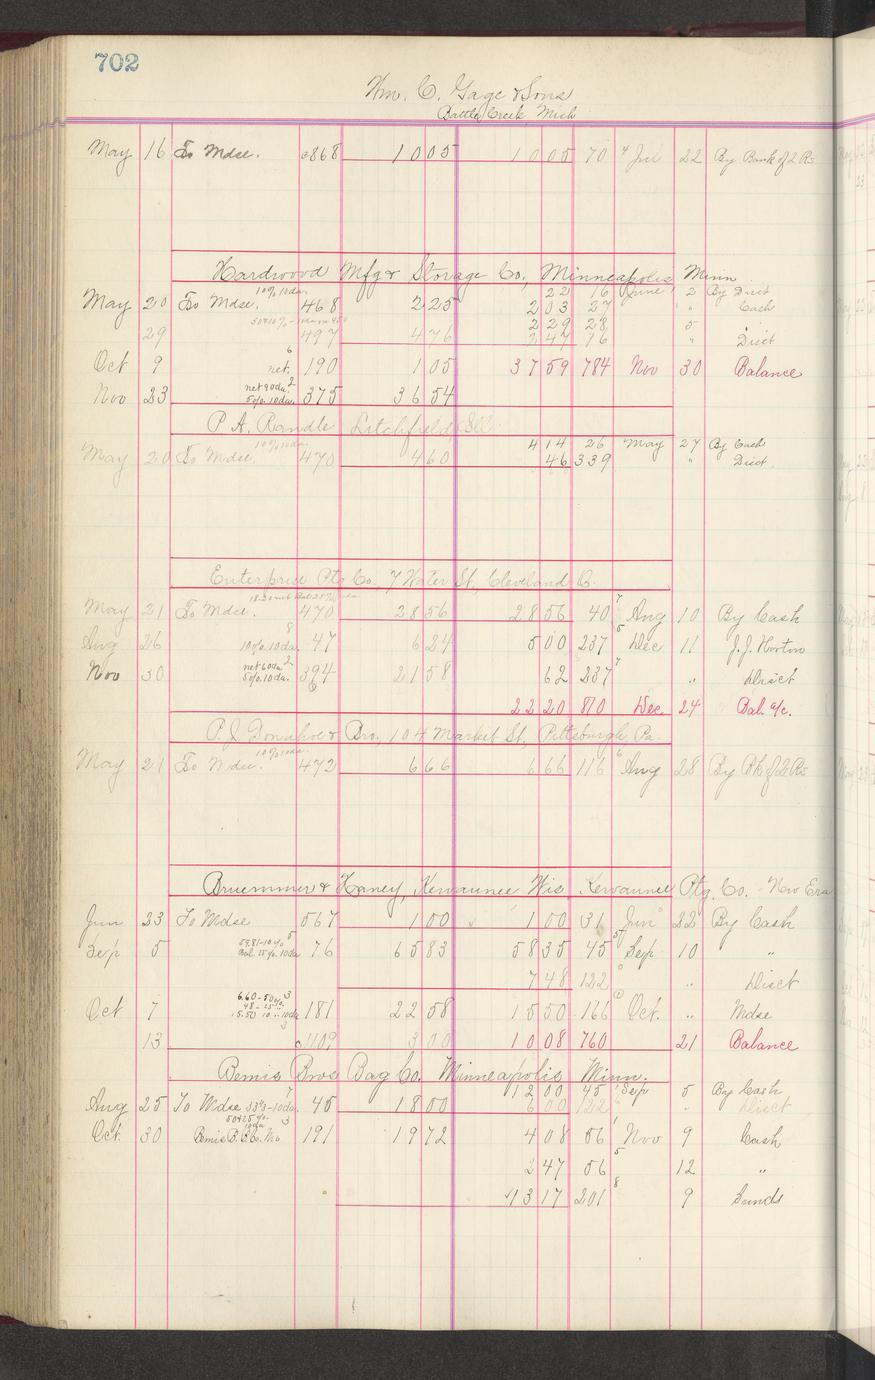 702
Wm. C. Gage & Sons
Battle Creek, Mich
May 16 To Mdse. 868 10 05 10 05 70 4 Jul 22 By Bank of 2 Rs
Hardwood Mfg & Storage Co, Minneapolis Minn
10% 10da. 22 16 June 2 By Disct
May 20 To Mdse. 468 225 203 27 " Cash
229 28 5 "
29 497 476 247 16 " Disct
Oct 9 net. 6 190 1 05 37 59 784 Nov 30 Balance
Nov 23 net 90da 2 5% 10da. 375 36 54
P. A. Randle Litchfield, Ill.
10% 10da 4 14 26 May 27 By Cash
May 20 To Mdse. 470 4 60 46 339 " Disct.
Enterprise Ptg Co., 7 Water St, Cleveland O.
May 21 To Mdse. 470 28 56 28 56 40 7 Aug 10 By Cash
Aug 26 8 10% 10da. 47 6 24 5 00 237 5 Dec 11 J. J. Horton
Nov 30 net 60da 2 5% 10da. 394 21 58 62 237 7 " Disct
22 20 810 Dec. 24 Bal. a/c.
P. J. Donahoe & Bro, 104 Market St, Pittsburgh Pa.
10% 10da.
May 21 To Mdse. 472 6 66 6 66 116 6 Aug 28 By Bk of 2 Rs
Bruemmer & Haney, Kewaunee Wis. Kewaunee Ptg. Co. - New Era
Jun 23 To Mdse 567 1 00 1 00 31 Jun 22 By Cash
Sep 5 59.81-10% 5 Bal. 15%. 10da 76 65 83 58 35 45 Sep 10 "
7 48 122 " Disct
Oct 7 6.60-50% 3 15.50 10 " 10da 181 22 58 15 50 166 Oct. " Mdse
13 3 409 3 00 10 08 760 21 Balance
Bemis Bros Bag Co. Minneapolis Minn.
12 00 45 Sep 5 By Cash
Aug 25 To Mdse 33⅓-10da. 7 45 18 00 6 00 122 " Disct
50&25%. 10da 3
Oct. 30 Bemis B. B. Co. Mo 191 19 72 4 08 56 Nov 9 Cash
2 47 56 5 12 "
13 17 201 8 9 Sunds